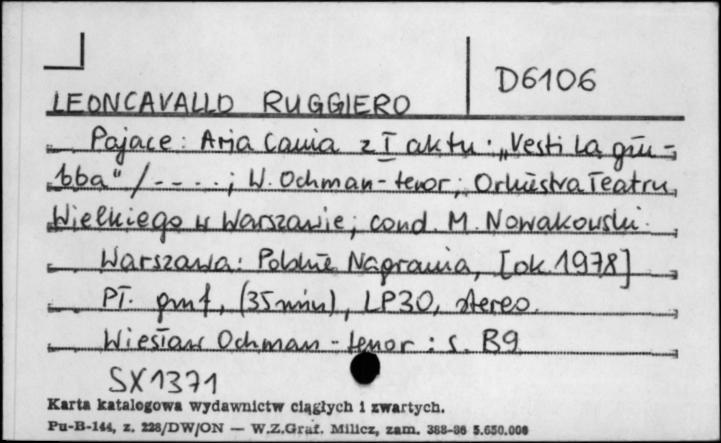 D6106
LEONCAVALLO RUGGIERO
Pajace: Aria Cania z I aktu: „Vesti la giu-
bba" / - - . . . ; W. Ochman - tenor; Orkiestra Teatru
Wielkiego w Warszawie; cond. M. Nowakowski.
Warszawa: Polskie Nagrania, [ok. 1978]
Pł. gmf, (35 min), LP30, stereo.
Wiesław Ochman - tenor: s. B9
SX1371
Karta katalogowa wydawnictw ciągłych i zwartych.
Pu-B-144, z. 228/DW/ON — W.Z.Graf. Milicz, zam. 388-86 5.650.000